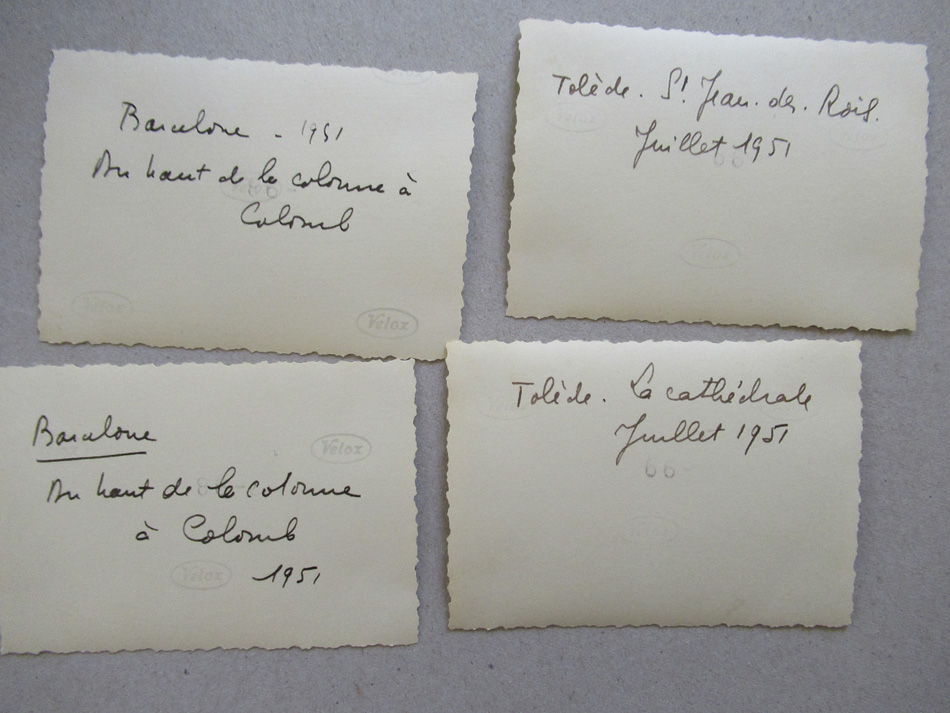 Barcelone - 1951
Du haut de la colonne à
Colomb
Velox
Velox
Tolède. St Jean. des. Rois.
Juillet 1951
Velox
Barcelone
Velox
Du haut de la colonne
à Colomb
Velox
1951
Tolède. La cathédrale
Juillet 1951
66-